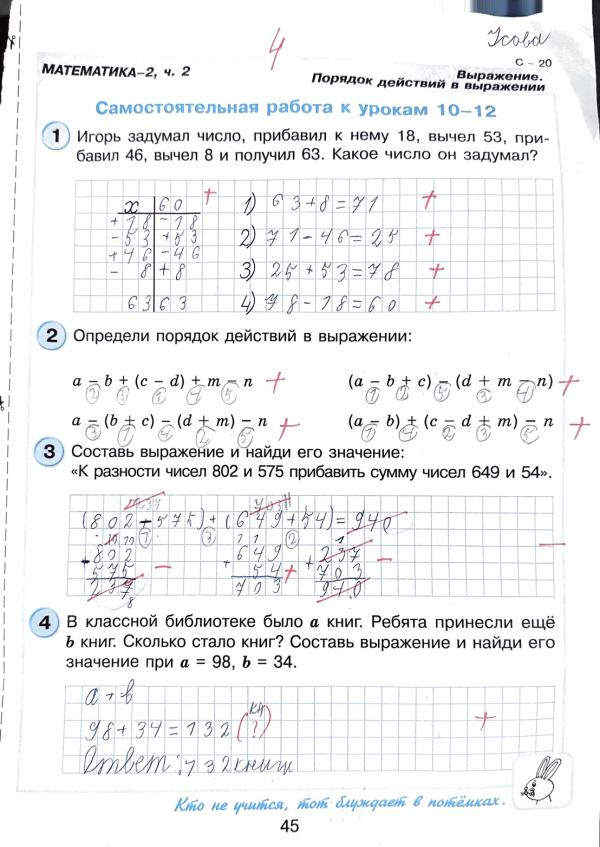 4
Усова
С – 20
МАТЕМАТИКА–2, ч. 2
Выражение.
Порядок действий в выражении
Самостоятельная работа к урокам 10–12
1 Игорь задумал число, прибавил к нему 18, вычел 53, при-
бавил 46, вычел 8 и получил 63. Какое число он задумал?
x 60 +
+18 -18
-53 +53
+46 -46
- 8 +8
63 63
1) 63+8=71 +
2) 71-46=25 +
3) 25+53=78 +
4) 78-18=60 +
2 Определи порядок действий в выражении:
a – b + (c – d) + m – n +
2 3 1 4 5
(a – b + c) – (d + m – n) +
1 2 5 3 4
a – (b + c) – (d + m) – n +
3 1 4 2 5
(a – b) + (c – d + m) – n +
1 4 2 3 5
3 Составь выражение и найди его значение:
«К разности чисел 802 и 575 прибавить сумму чисел 649 и 54».
237 703
(802-575)+(649+54)=940
1 3 2
802 649 237
575 54 703
237 703 940
8
4 В классной библиотеке было a книг. Ребята принесли ещё
b книг. Сколько стало книг? Составь выражение и найди его
значение при a = 98, b = 34.
a + b
98+34=132 (?) кн
Ответ: 132 книги
+
Кто не учится, тот блуждает в потёмках.
45